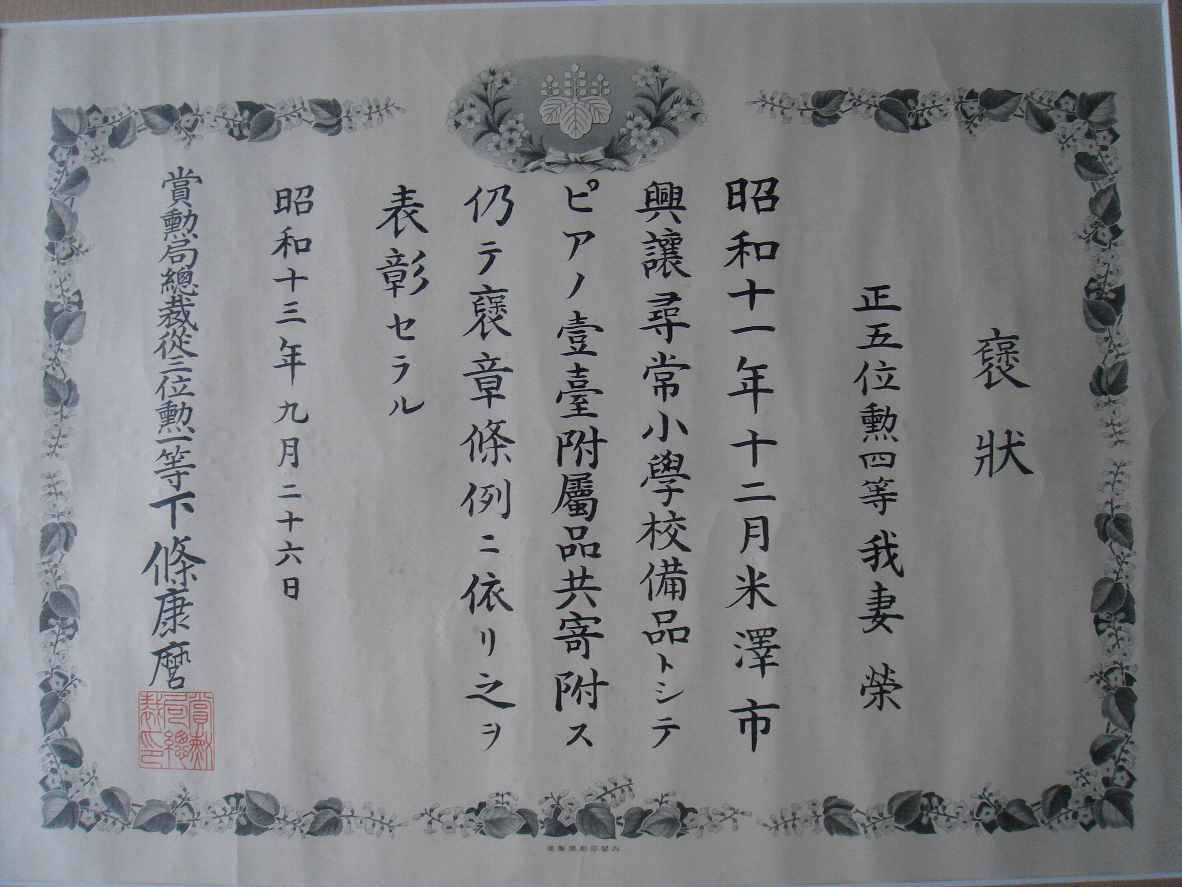 褒狀
正五位勲四等我妻榮
昭和十一年十二月米澤市
興讓尋常小學校備品トシテ
ピアノ壹臺附屬品共寄附ス
仍テ褒章條例ニ依リ之ヲ
表彰セラル
昭和十三年九月二十六日
賞勲局總裁從三位勲一等下條康麿
賞勲
局總
裁印